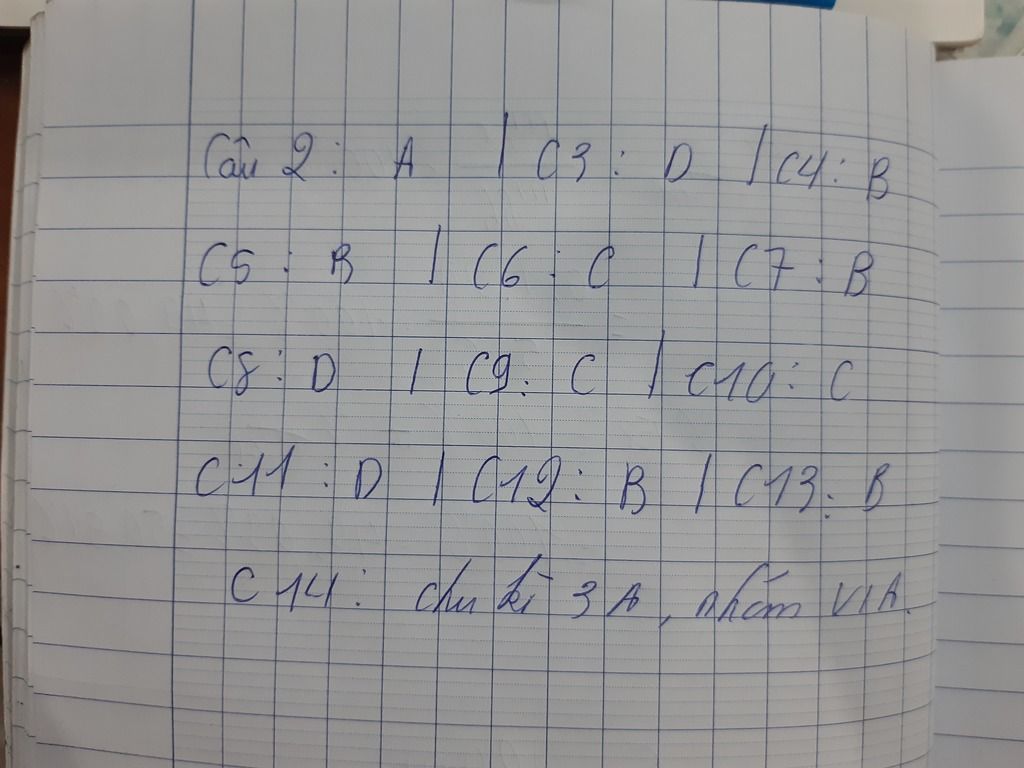 Câu 2: A | C3: D | C4: B
C5: B | C6: C | C7: B
C8: D | C9: C | C10: C
C11: D | C12: B | C13: B
C14: chu kì 3A, nhóm VIA.